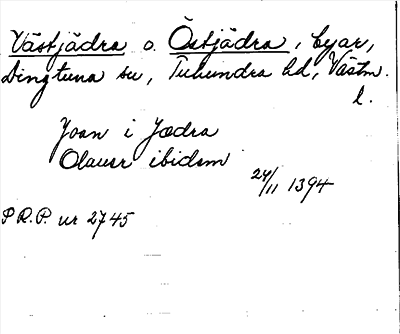 Västjädra o. Östjädra, byar,
Dingtuna sn, Tuhundra hd, Västm.
l.
Joan i Jædra
Olauer ibidem
24/11 1394
P.R.P. nr 2745